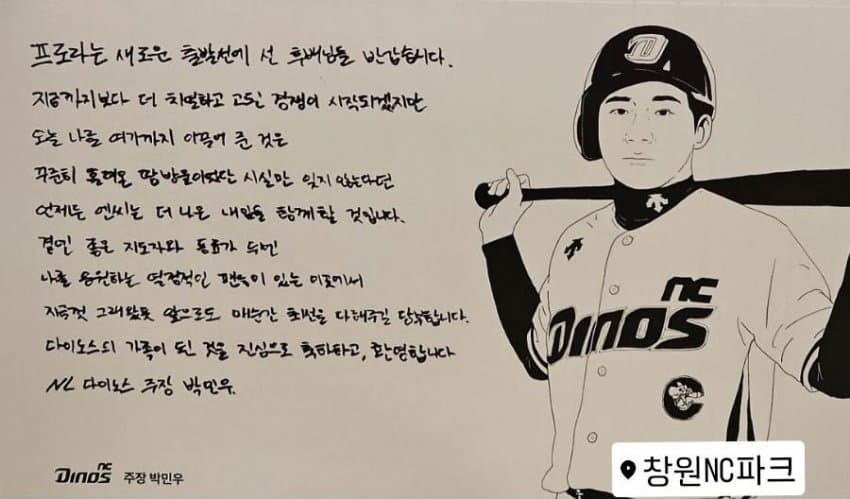 프로라는 새로운 출발선에 선 후배님들 반갑습니다.
지금까지보다 더 치열하고 고된 경쟁이 시작되겠지만
오늘 나를 여기까지 이끌어 준 것은
꾸준히 흘려온 땀방울이었단 사실만 잊지 않는다면
언제든 엔씨는 더 나은 내일을 함께할 것입니다.
곁엔 좋은 지도자와 동료가 두번
나를 응원하는 열정적인 팬들이 있는 이곳에서
지금껏 그래왔듯 앞으로도 매순간 최선을 다해주길 당부합니다.
다이노스의 가족이 된 것을 진심으로 축하하고, 환영합니다
NC 다이노스 주장 박민우.
NC
DINOS
C
NC
DINOS 주장 박민우
창원NC파크